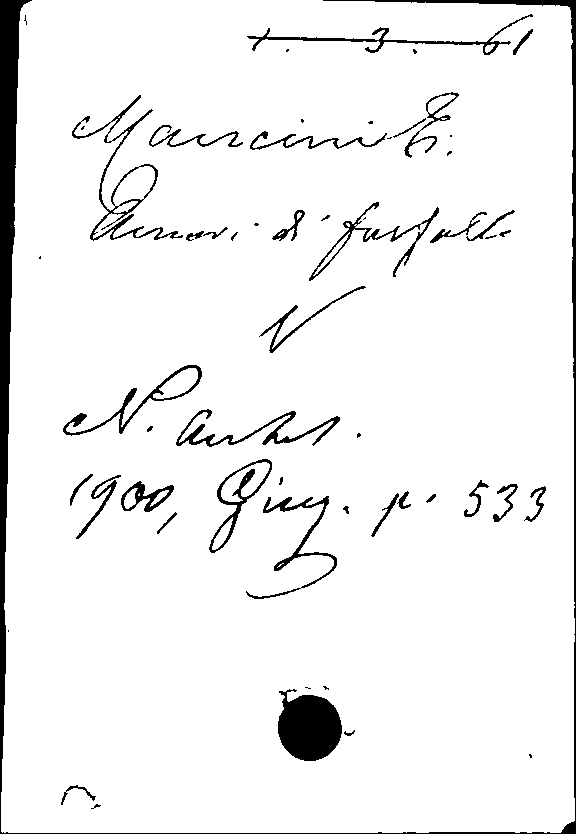 1. 3. 61
Mancini E.
Amori di farfalle
V
N. Antol.
1900, Giug. p. 533